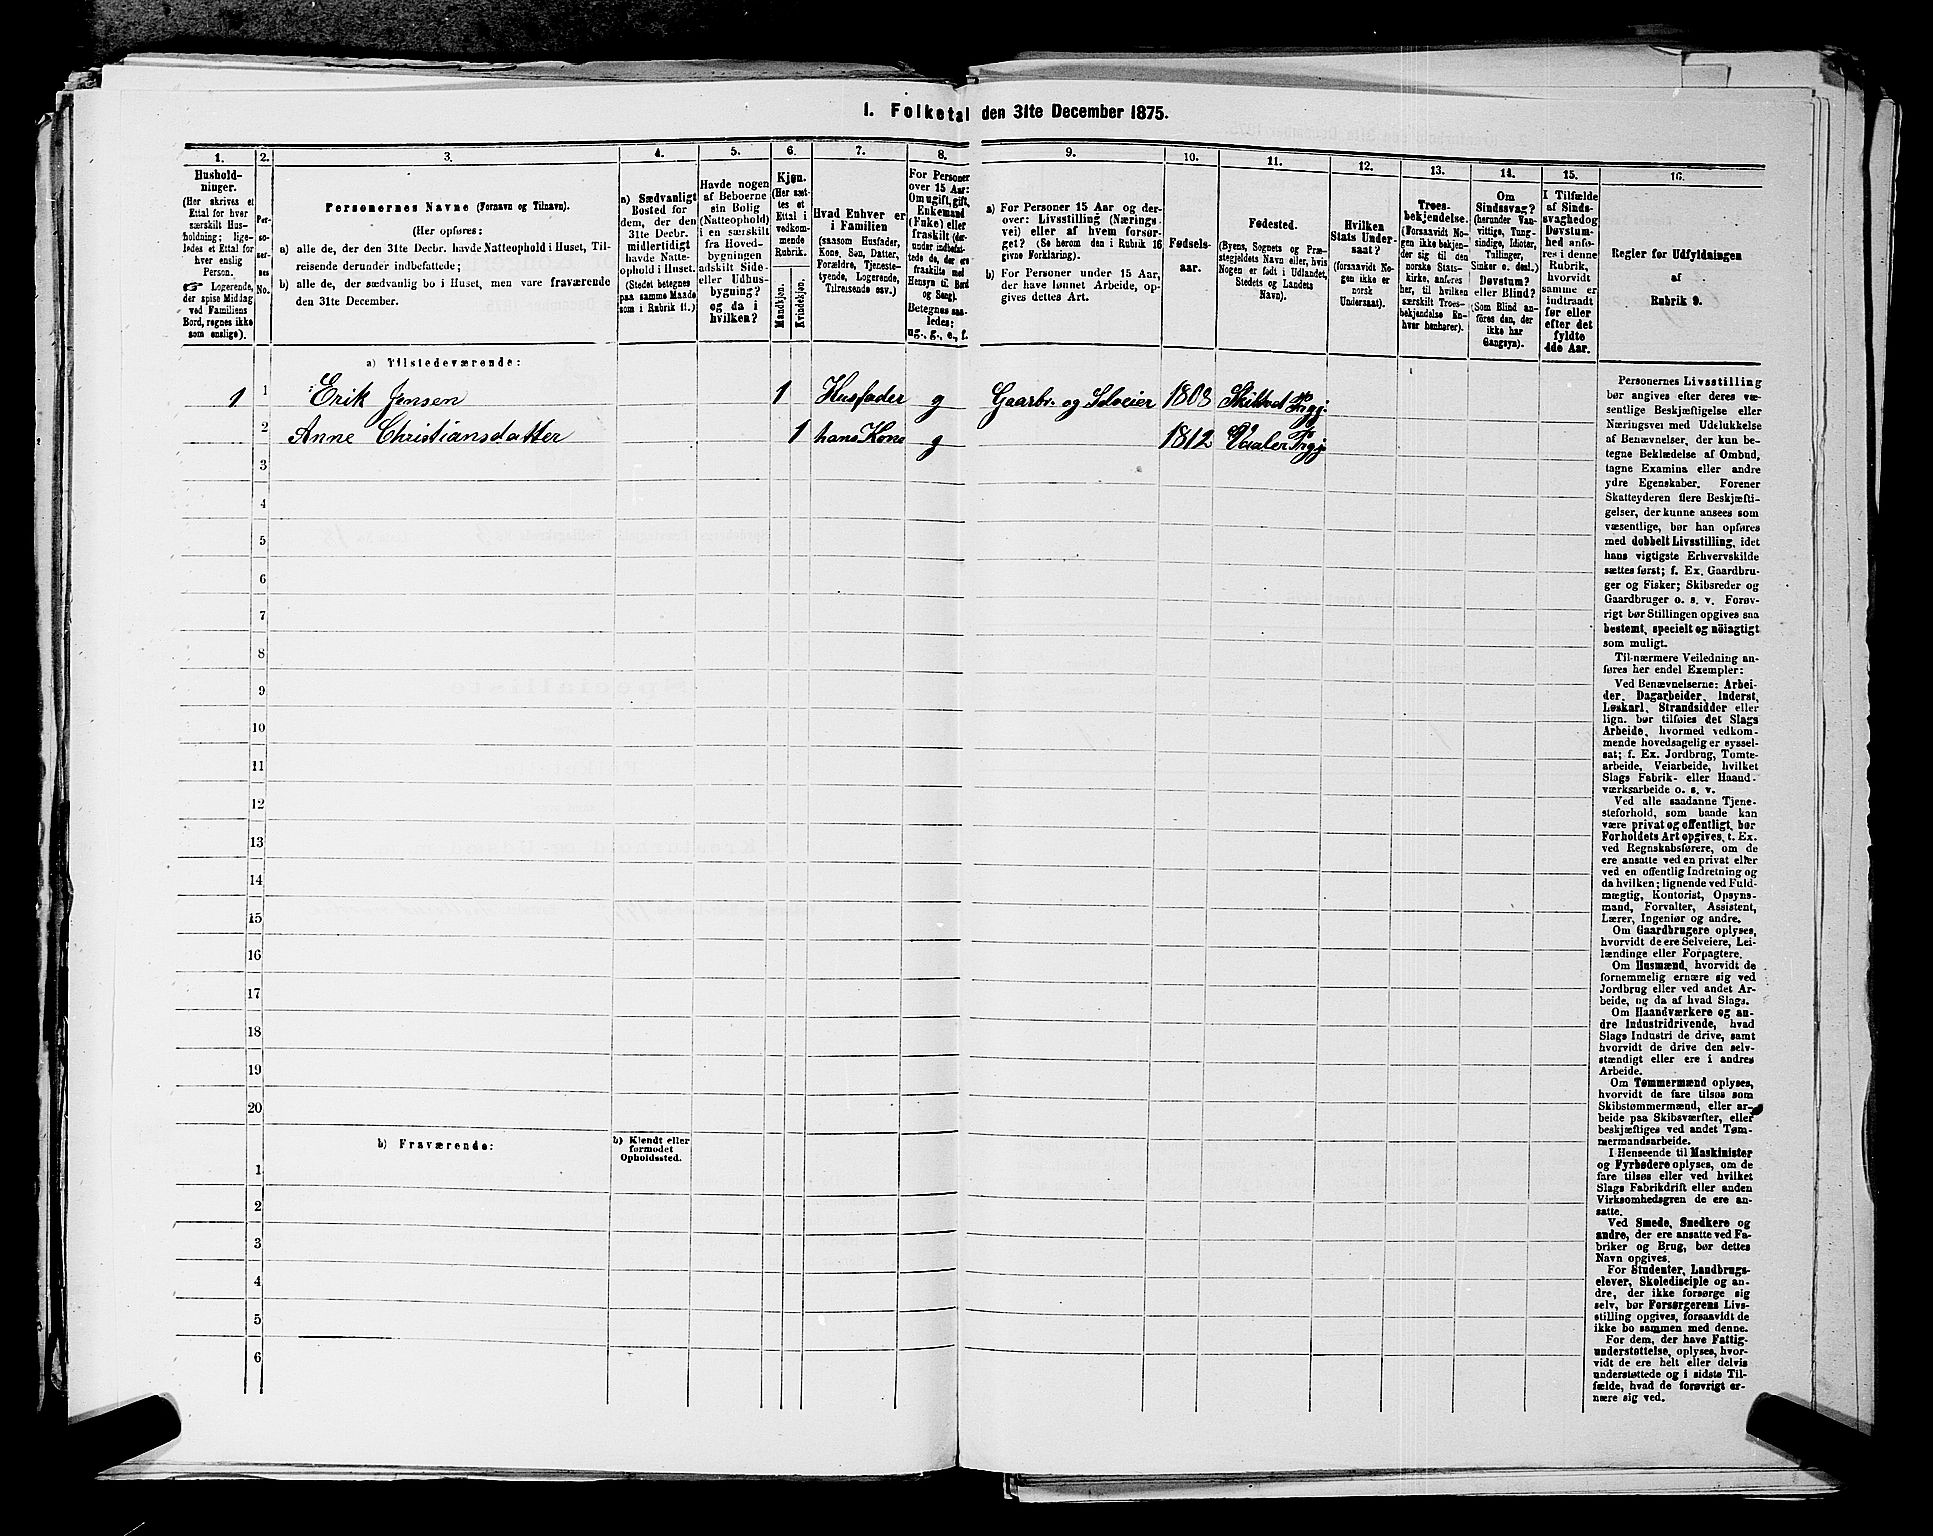 1. Folketal den 31te December 1875.
1.
2.
3.
4.
5.
6.
7.
8.
9.
10.
11.
12.
13.
14.
15.
16.
Hushold-
ninger.
(Her skrives et
Ettal for hver
særskilt Hus-
holdning; lige-
ledes et Ettal for
hver enslig
Person.
☞ Logerende,
der spise Middag
ved Familiens
Bord, regnes ikke
som enslige).
Per-
so-
ner-
nes
No.
Personernes Navne (Fornavn og Tilnavn).
(Her opføres:
a) alle de, der den 31te Decbr. havde Natteophold i Huset, Til-
reisende derunder indbefattede;
b) alle de, der sædvanlig bo i Huset, men vare fraværende
den 31te December.
a) Sædvanligt
Bosted for
dem, der den
31te Decbr.
midlertidigt
havde Natte-
ophold i Huset.
(Stedet betegnes
paa samme Maade
som i Rubrik 11.)
Havde nogen
af Beboerne
sin Bolig
(Natteophold)
i en særskilt
fra Hoved-
bygningen
adskilt Side-
eller Udhus-
bygning?
og da i
hvilken?
Kjøn.
(Her sæt-
tes et
Ettal i
vedkom-
mende
Rubrik.
Mandkjøn.
Kvindekjøn.
Hvad Enhver er
i Familien
(saasom Husfader,
Kone, Søn, Datter,
Forældre, Tjeneste-
tyende, Logerende,
Tilreisende osv.)
For Personer
over 15 Aar:
Om ugift, gift,
Enkemand
(Enke) eller
fraskilt (der-
under indbefat-
tede de, der ere
fraskilte med
Hensyn til Bord
og Seng).
Betegnes saa-
ledes:
ug., g., e., f.
a) For Personer 15 Aar og der-
over: Livsstilling (Nærings-
vei) eller af hvem forsør-
get? (Se herom den i Rubrik 16
givne Forklaring).
b) For Personer under 15 Aar,
der have lønnet Arbeide, op-
gives dettes Art.
Fødsels-
aar.
Fødested.
(Byens, Sognets og Præ-
stegjeldets Navn eller, hvis
Nogen er født i Udlandet,
Stedets og Landets
Navn).
Hvilken
Stats Under-
saat?
(forsaavidt No-
gen ikke er
norsk
Undersaat).
Troes-
bekjendelse.
(Forsaavidt No-
gen ikke bekjen-
der sig til den
norske Stats-
kirke, anføres
her, til hvilken
særskilt Troes-
bekjendelse En-
hver henhører).
Om
Sindssvag?
(herunder Van-
vittige, Tung-
sindige, Idioter,
Tullinger,
Sinker o. desl.)
Døvstum?
eller Blind?
(Som Blind an-
føres den, der
ikke har
Gangsyn).
I Tilfælde
af Sinds-
svaghed og
Døvstum-
hed anfø-
res i denne
Rubrik,
hvorvidt
samme er
indtraadt
før eller
efter det
fyldte
4de Aar.
Regler for Udfyldningen
af
Rubrik 9.
a) Tilstedeværende:
1 1 Erik Jensen 1 Husfader g Gaardbr. og Selveier 1803 Skiptved Prgj.
2 Anne Christiansdatter 1 hans Kone g 1812 Vaaler Prgj.
3
4
5
6
7
8
9
10
11
12
13
14
15
16
17
18
19
20
b) Fraværende:
b) Kjendt eller
formodet
Opholdssted.
1
2
3
4
5
6
Personernes Livsstilling
bør angives efter deres væ-
sentlige Beskjæftigelse eller
Næringsvei med Udelukkelse
af Benævnelser, der kun be-
tegne Beklædelse af Ombud,
tagne Examina eller andre
ydre Egenskaber. Forener
Skatteyderen flere Beskjæfti-
gelser, der kunne ansees som
væsentlige, bør han opføres
med dobbelt Livsstilling, idet
hans vigtigste Erhvervskilde
sættes først; f. Ex. Gaardbru-
ger og Fisker; Skibsreder og
Gaardbruger o. s. v. Forøv-
rigt bør Stillingen opgives saa
bestemt, specielt og nöiagtigt
som muligt.
Til nærmere Veiledning an-
føres her endel Exempler:
Ved Benævnelserne: Arbei-
der, Dagarbeider, Inderst,
Løskarl, Strandsidder eller
lign. bør tilføies det Slags
Arbeide, hvormed vedkom-
mende hovedsagelig er syssel-
sat; f. Ex. Jordbrug, Tomte-
arbeide, Veiarbeide, hvilket
Slags Fabrik- eller Haand-
værksarbeide o. s. v.
Ved alle saadanne Tjene-
steforhold, som baade kan
være privat og offentligt, bør
Forholdets Art opgives, t. Ex.
ved Regnskabsførere, om de
ere ansatte ved en privat eller
ved en offentlig Indretning og
da hvilken; lignende ved Fuld-
mægtig, Kontorist, Opsyns-
mand, Forvalter, Assistent,
Lærer, Ingeniør og andre.
Om Gaardbrugere oplyses,
hvorvidt de ere Selveiere, Lei-
lændinge eller Forpagtere.
Om Husmænd, hvorvidt de
fornemmelig ernære sig ved
Jordbrug eller ved andet Ar-
beide, og da af hvad Slags.
Om Haandværkere og an-
dre Industridrivende, hvad
Slags Industri de drive, samt
hvorvidt de drive den selv-
stændigt eller ere i andres
Arbeide.
Om Tømmermænd oplyses,
hvorvidt de fare tilsøs som
Skibstømmermænd, eller ar-
beide paa Skibsværfter, eller
beskjæftiges ved andet Tøm-
mermandsarbeide.
I Henseende til Maskinister
og Fyrbødere oplyses, om de
fare tilsøs eller ved hvilket
Slags Fabrikdrift eller anden
Virksomhedsgren de ere an-
satte.
Ved Smede, Snedkere og
andre, der ere ansatte ved Fa-
briker og Brug, bør dettes
Navn opgives.
For Studenter, Landbrugs-
elever, Skoledisciple og an-
dre, der ikke forsørge sig
selv, bør Forsørgerens Livs-
stilling opgives, forsaavidt de
ikke bo sammen med denne.
For dem, der have Fattig-
understøttelse, oplyses, hvor-
vidt de ere helt eller delvis
understøttede og i sidste Til-
fælde, hvad de forøvrigt er-
nære sig ved.